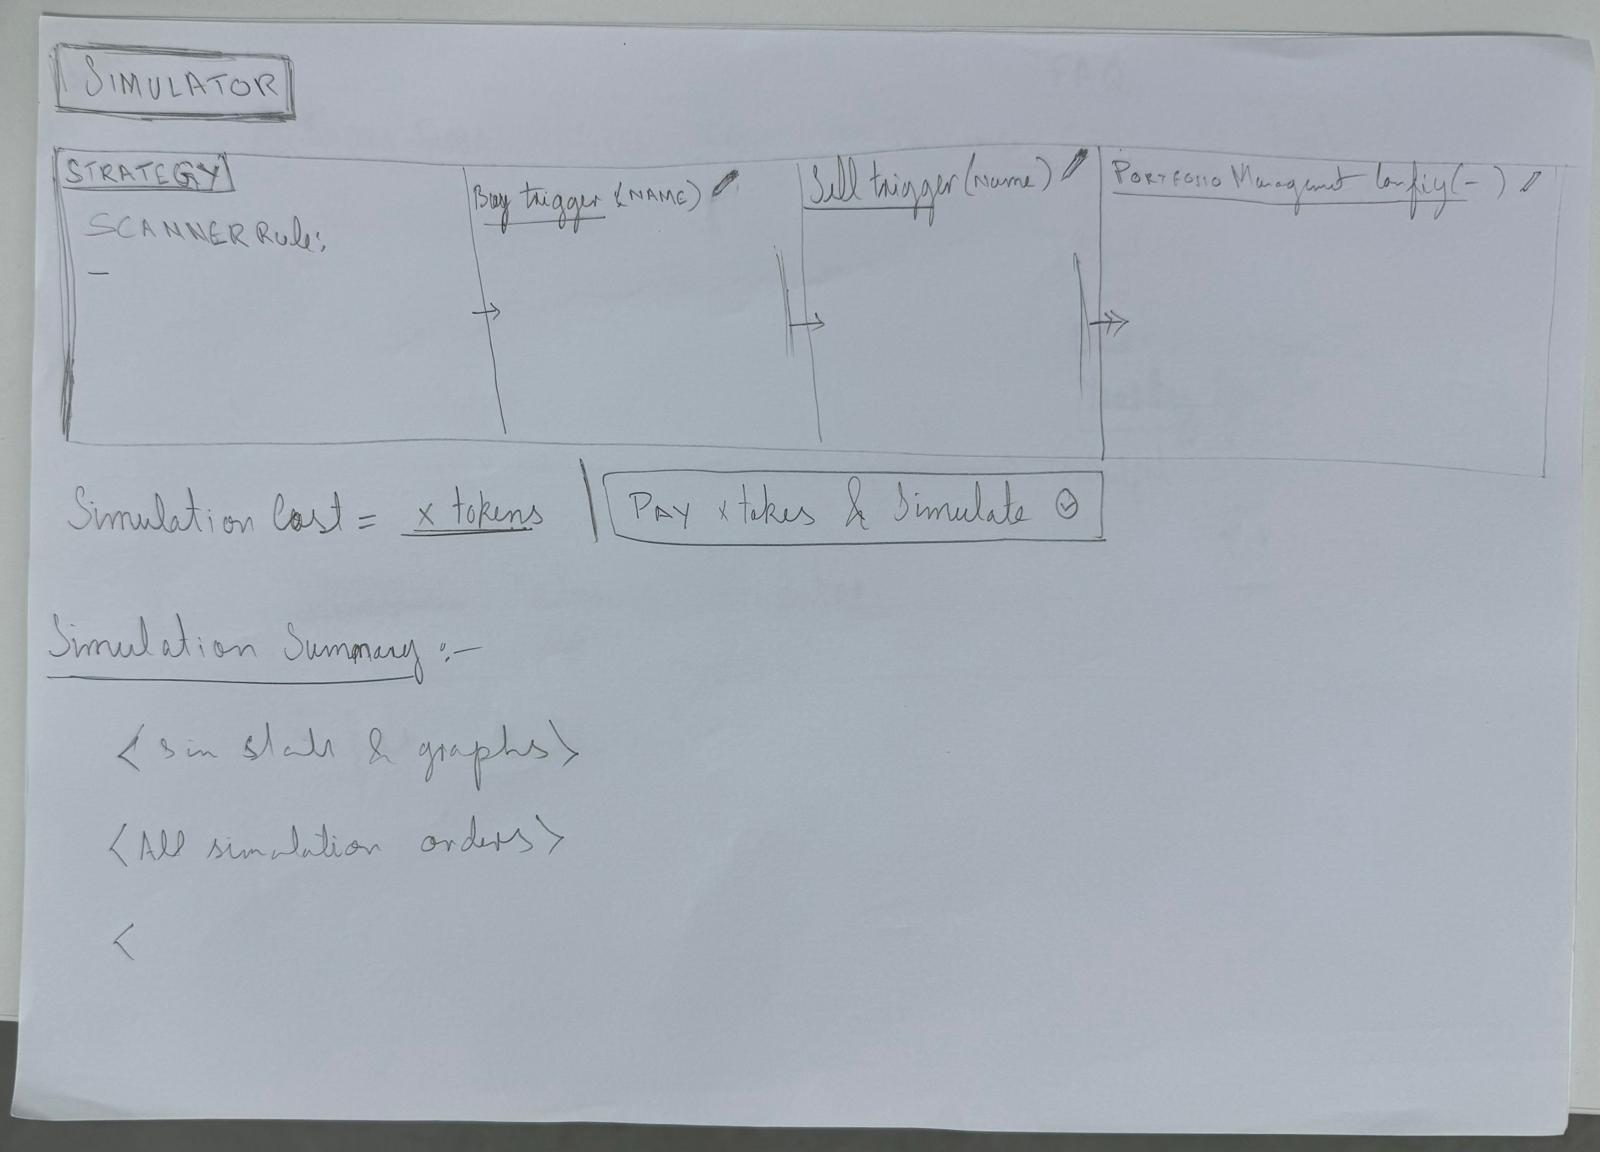 SIMULATOR
STRATEGY
SCANNER Rule:
–
Buy trigger (NAME)
Sell trigger (Name)
PORTFOLIO Management Config (-)
Simulation Cost = x tokens
PAY x tokes & Simulate
Simulation Summary :-
<sim stats & graphs>
<All simulation orders>
<